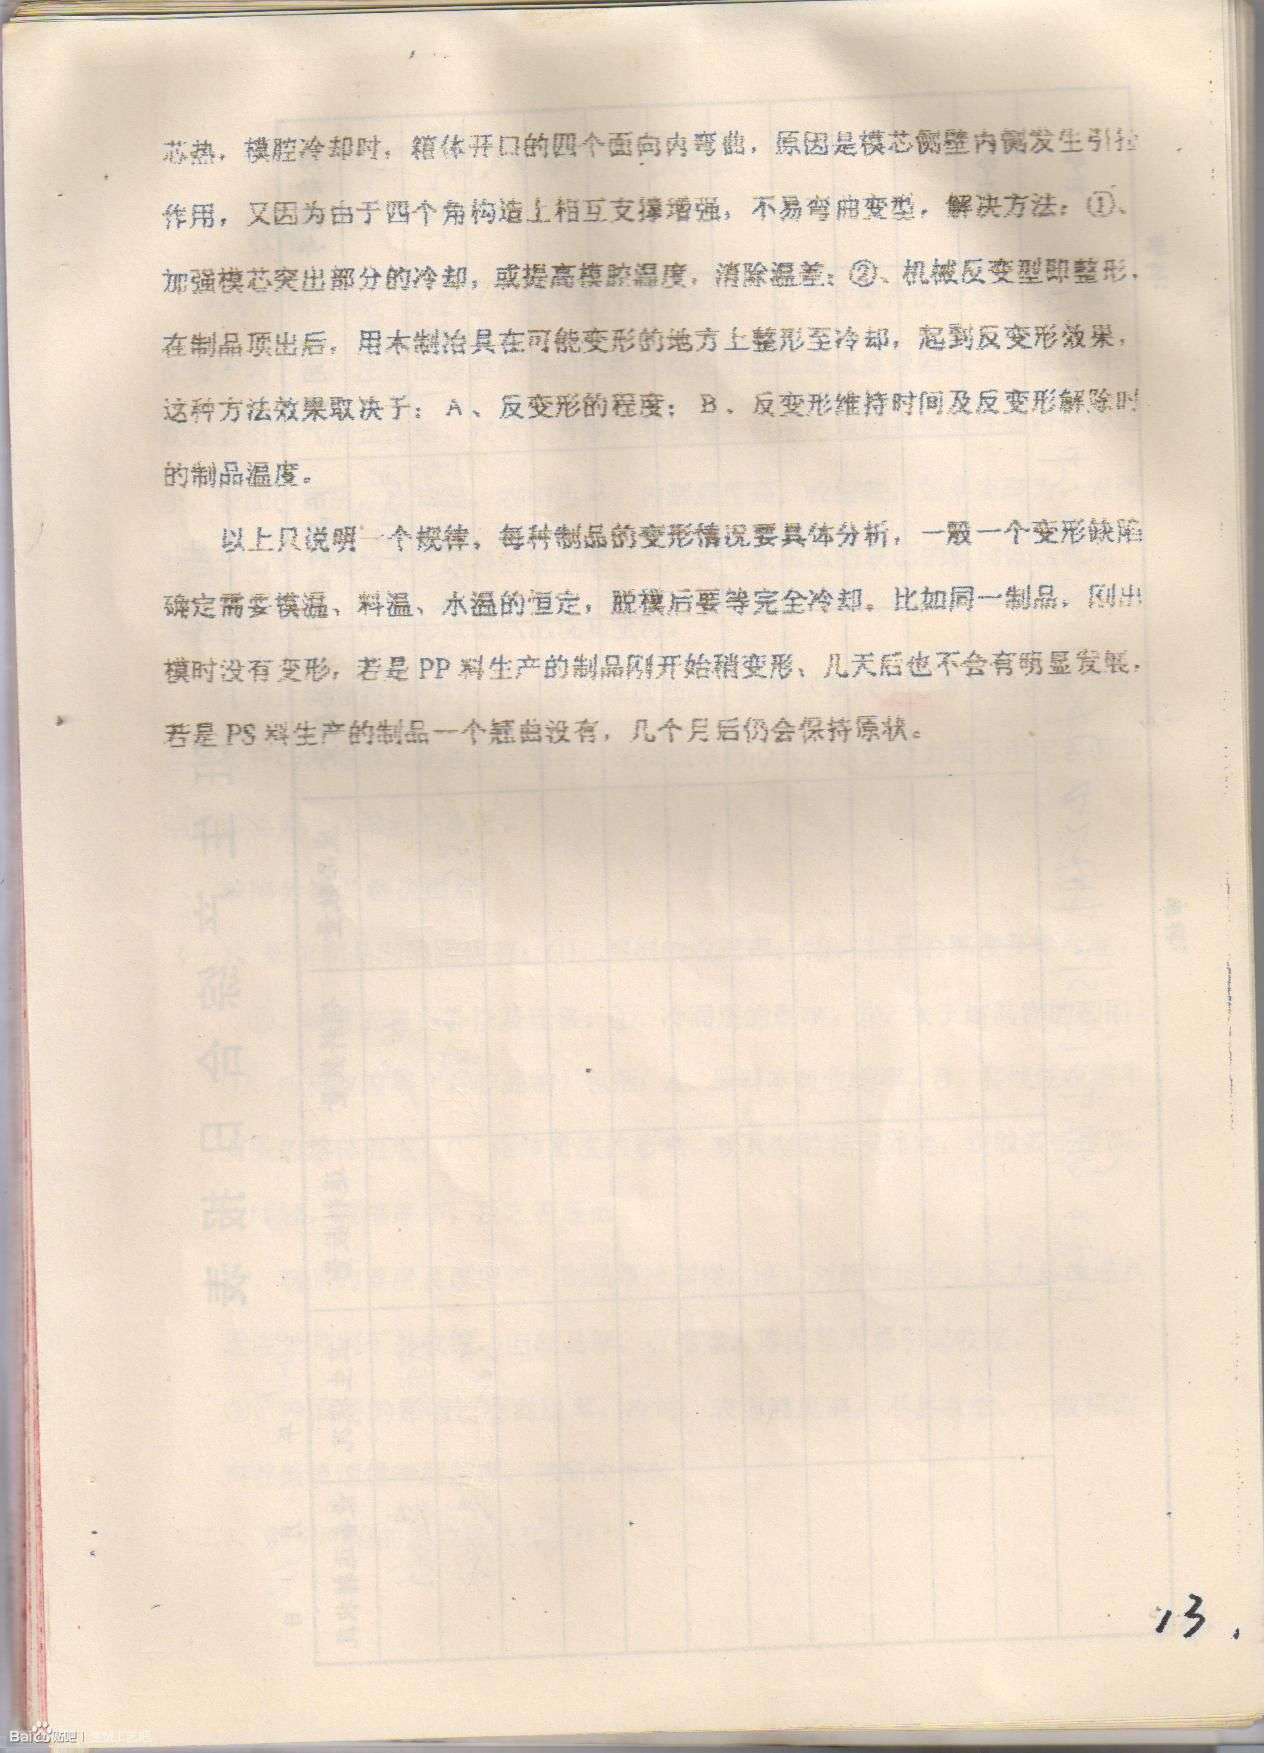 芯热，模腔冷却时，箱体开口的四个面向内弯曲，原因是模芯侧壁内侧发生引拉
作用，又因为由于四个角构造上相互支撑增强，不易弯曲变型，解决方法：①、
加强模芯突出部分的冷却，或提高模腔温度，消除温差；②、机械反变型即整形，
在制品顶出后，用木制冶具在可能变形的地方上整形至冷却，起到反变形效果，
这种方法效果取决于：A、反变形的程度；B、反变形维持时间及反变形解除时
的制品温度。
以上只说明一个规律，每种制品的变形情况要具体分析，一般一个变形缺陷
确定需要模温、料温、水温的恒定，脱模后要等完全冷却。比如同一制品，刚出
模时没有变形，若是PP料生产的制品刚开始稍变形、几天后也不会有明显发展，
若是PS料生产的制品一个翘曲没有，几个月后仍会保持原状。
13.
Bai 贴吧